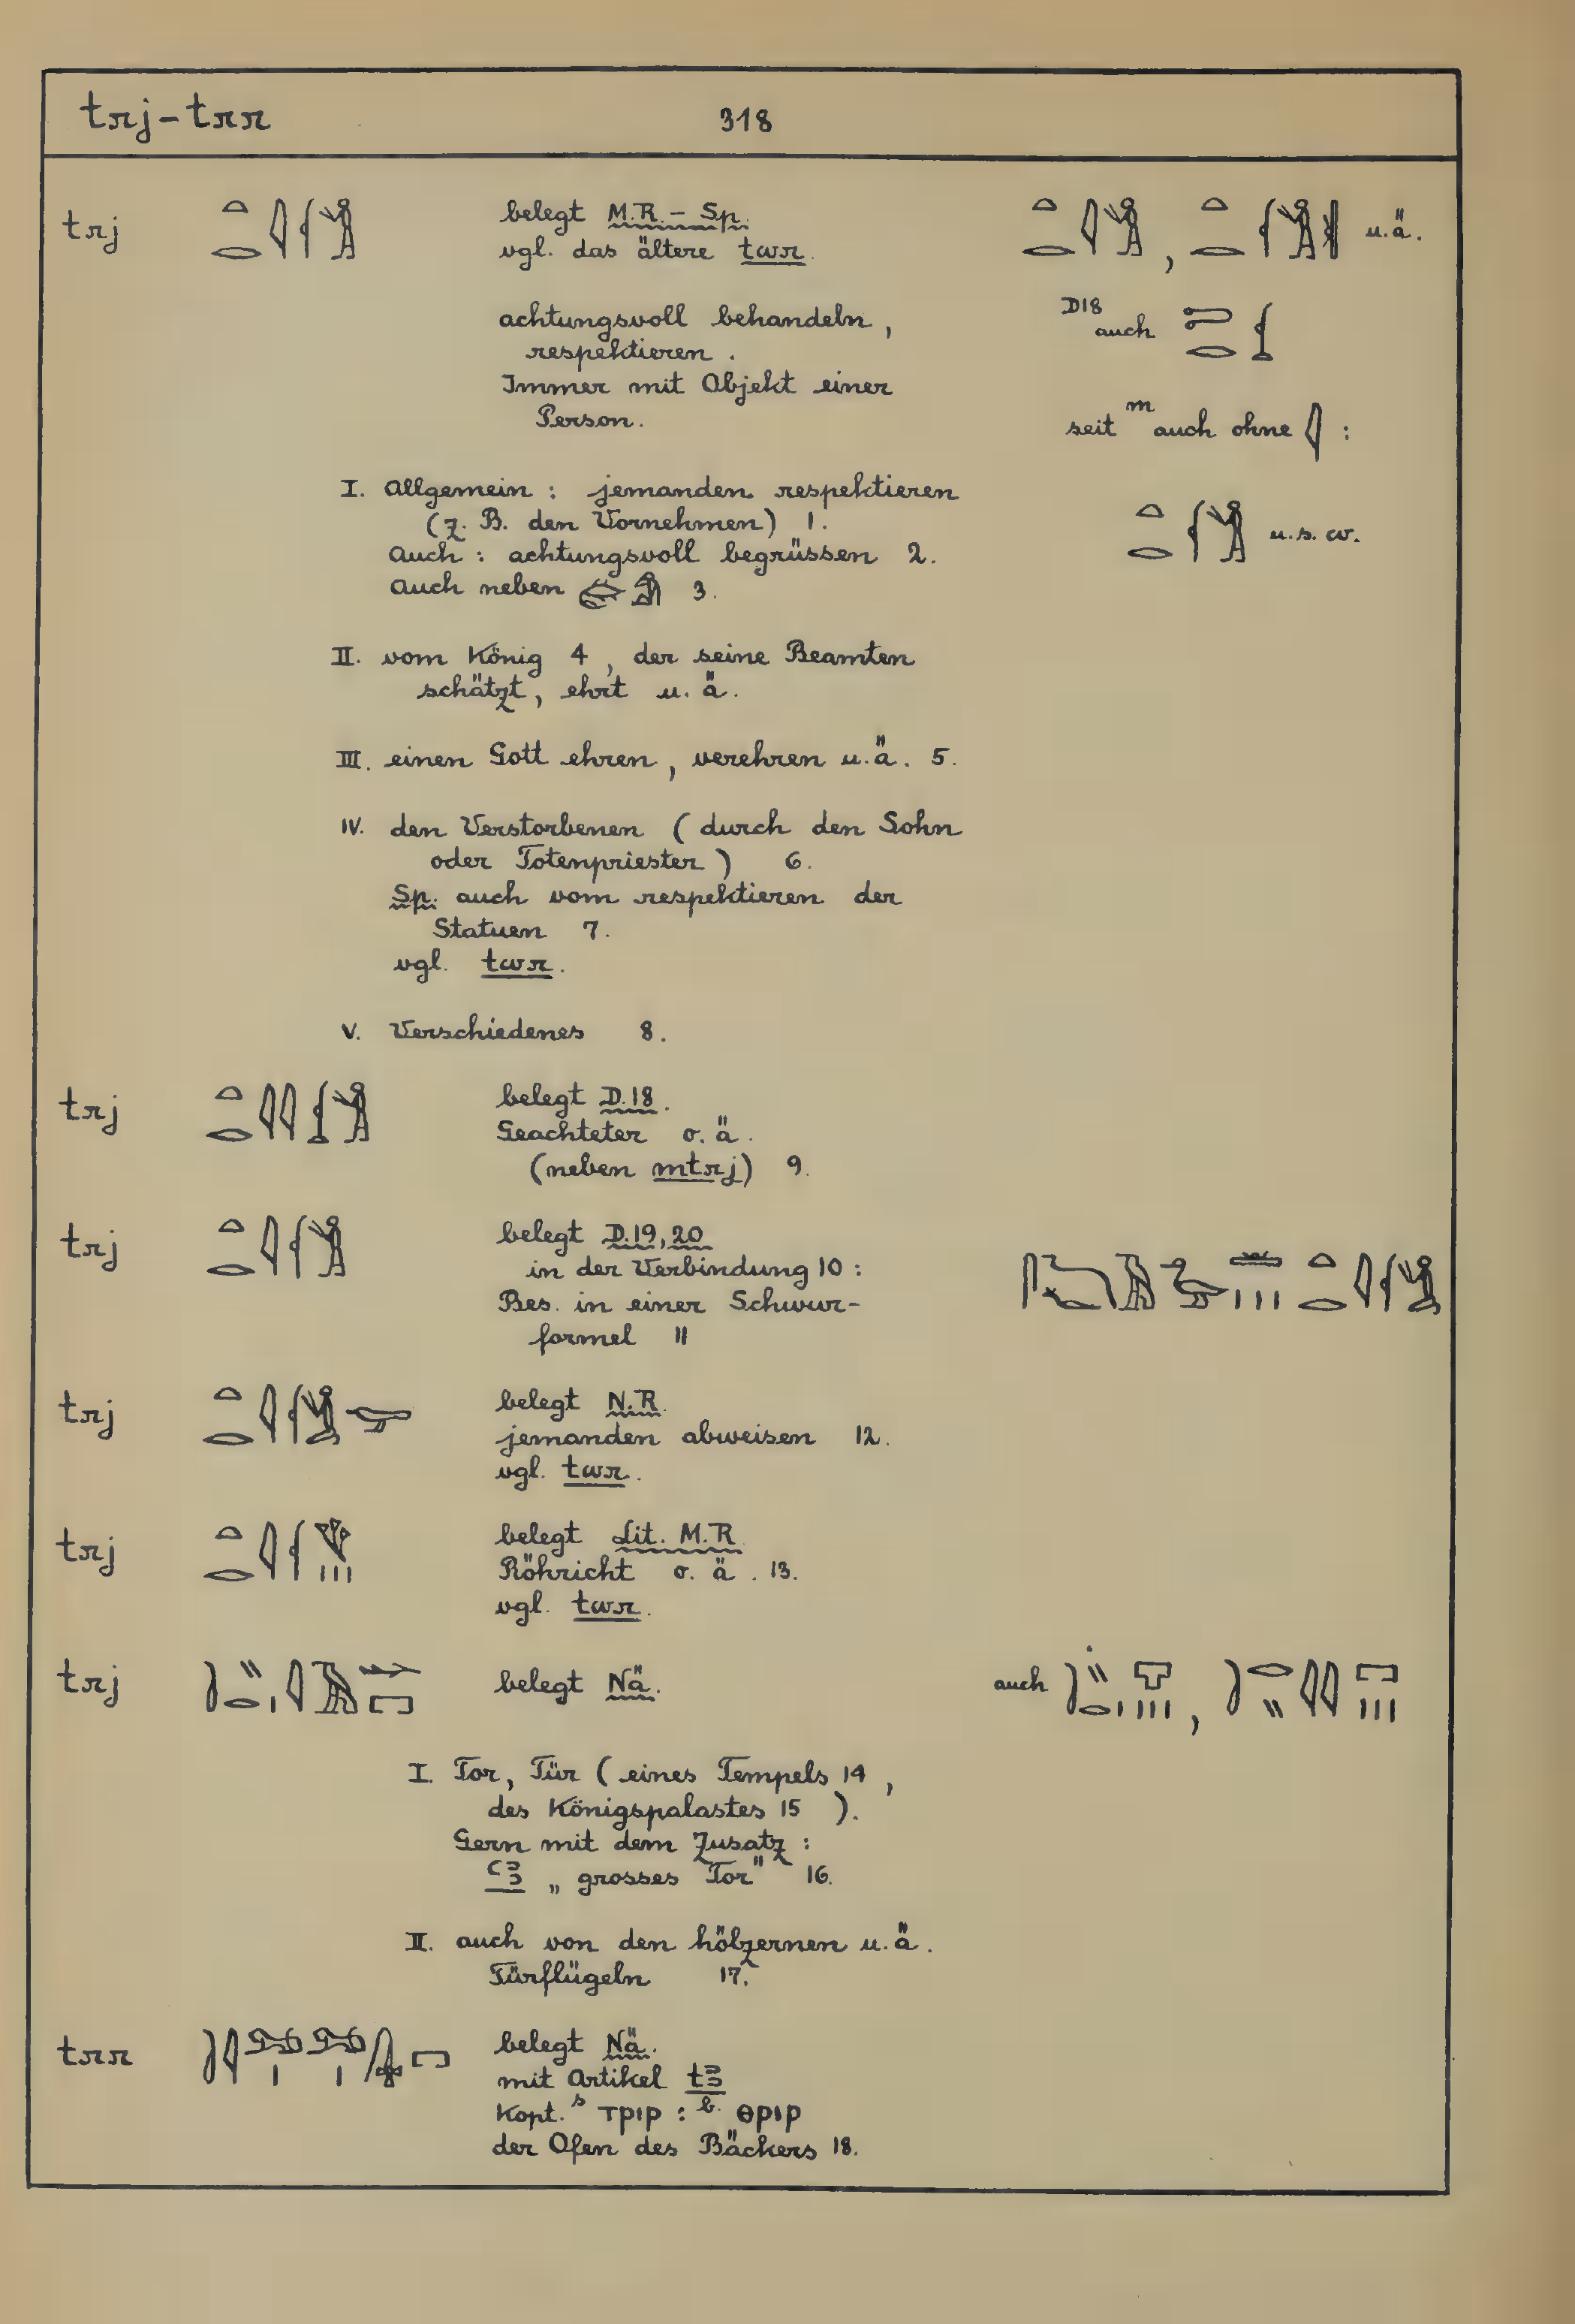 trj - trr 318
trj belegt M.R. - Sp.
vgl. das ältere twr.
u.ä.
achtungsvoll behandeln,
respektieren.
Immer mit Objekt einer
Person.
D18 auch
seit m auch ohne :
I. Allgemein : jemanden respektieren
(z. B. den Vornehmen) 1.
Auch : achtungsvoll begrüssen 2.
Auch neben 3.
u.s.w.
II. vom König 4, der seine Beamten
schätzt, ehrt u. ä.
III. einen Gott ehren, verehren u.ä. 5.
IV. den Verstorbenen (durch den Sohn
oder Totenpriester) 6.
Sp. auch vom respektieren der
Statuen 7.
vgl. twr.
V. Verschiedenes 8.
trj belegt D.18.
Geachteter o. ä.
(neben mtrj) 9.
trj belegt D.19,20
in der Verbindung 10 :
Bes. in einer Schwur-
formel 11
trj belegt N.R.
jemanden abweisen 12.
vgl. twr.
trj belegt Lit. M.R.
Röhricht o. ä. 13.
vgl. twr.
trj belegt Nä.
auch
I. Tor, Tür (eines Tempels 14,
des Königspalastes 15 ).
Gern mit dem Zusatz :
ꜥꜣ „grosses Tor" 16.
II. auch von den hölzernen u.ä.
Türflügeln 17.
trr belegt Nä.
mit Artikel tꜣ
Kopt. s ⲧⲣⲓⲣ : b. ⲑⲣⲓⲣ
der Ofen des Bäckers 18.